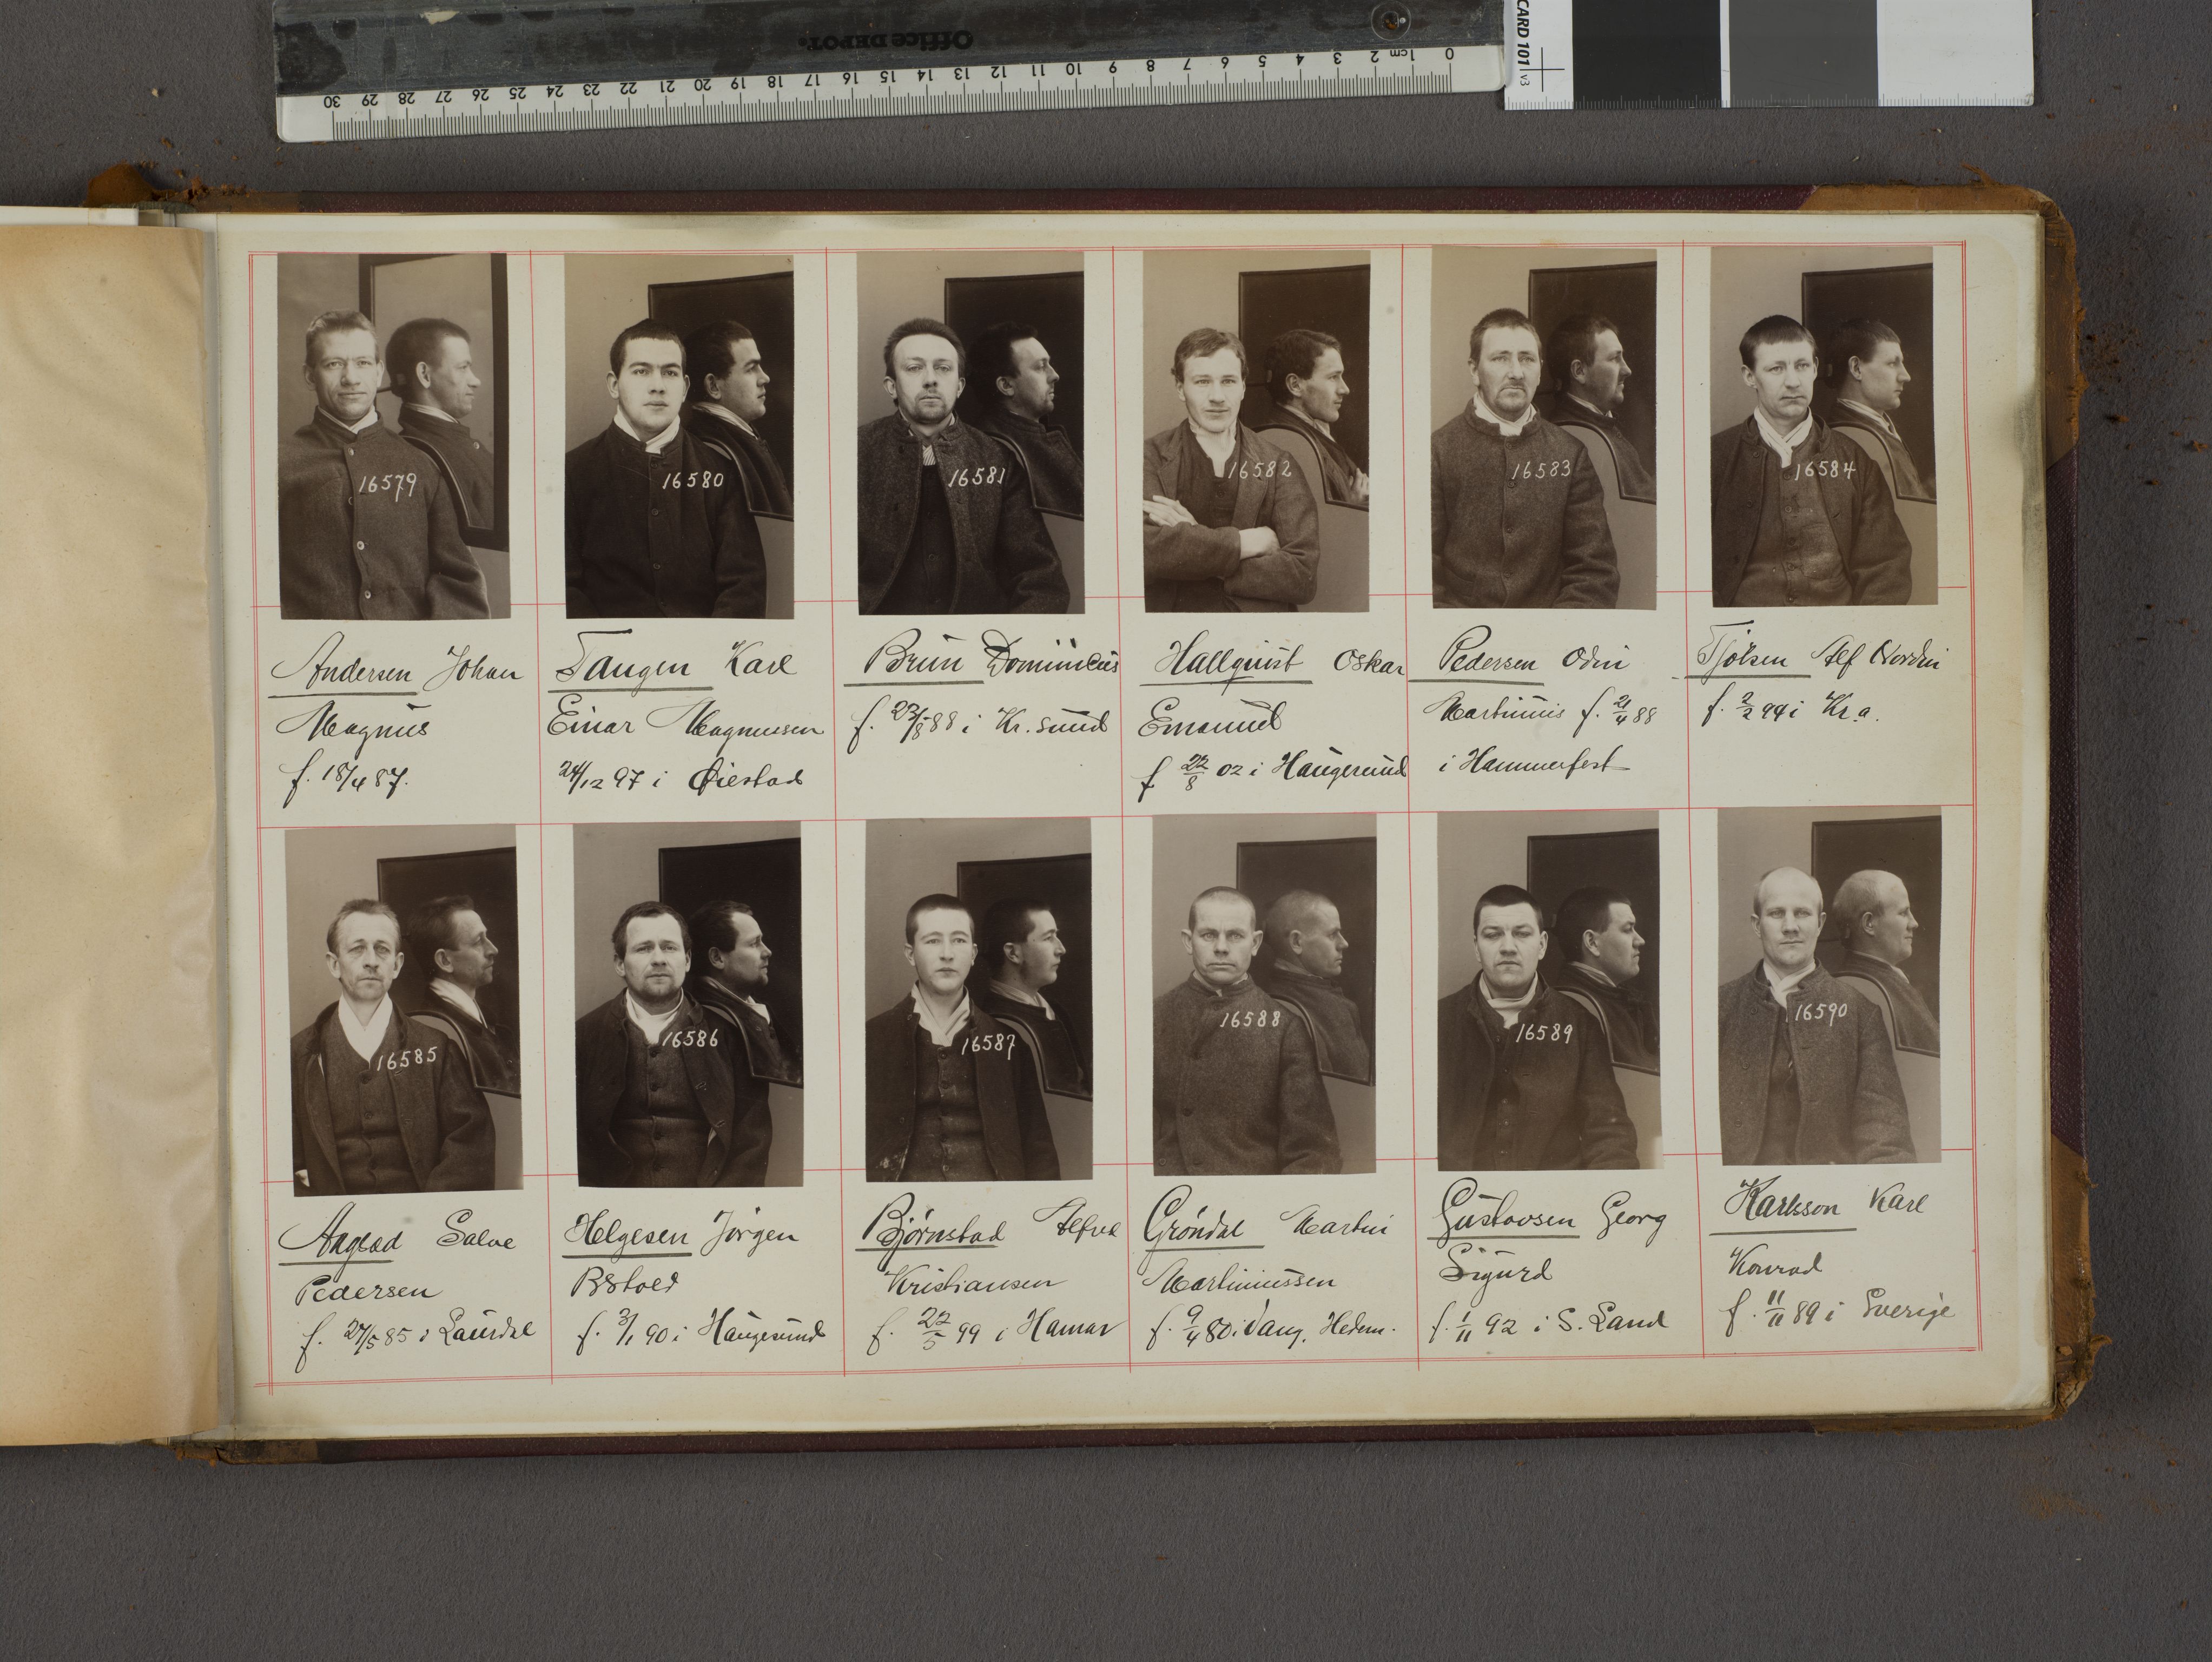 Office DEPOT.
0 1cm 2 3 4 5 6 7 8 9 10 11 12 13 14 15 16 17 18 19 20 21 22 23 24 25 26 27 28 29 30
CARD 101 v3
16579
16580
16581
16582
16583
16584
Andersen Johan
Magnus
f. 18/4 87.
Tangen Karl
Einar Magnussen
24/12 97 i Øiestad
Brun Dominicus
f. 23/8 88 i Kr.sund
Hallquist Oskar
Emanuel
f 22/8 02 i Haugesund
Pedersen Odin
Martinius f. 21/4 88
i Hammerfest
Tjölsen Alf Nordin
f. 2/2 99 i Kr.a.
16585
16586
16587
16588
16589
16590
Salve
Pedersen
f. 27/5 85 i Laurdal
Helgesen Jörgen
f. 3/1 90 i Haugesund
Björnstad Alfred
Kristiansen
f. 22/5 99 i Hamar
Gröndal Martin
Martiniussen
f. 9/4 80 i Vang, Hedem.
Gustavsen Georg
Sigurd
f. 1/11 92 i S. Land
Karlsson Karl
Konrad
f. 11/11 89 i Sverige